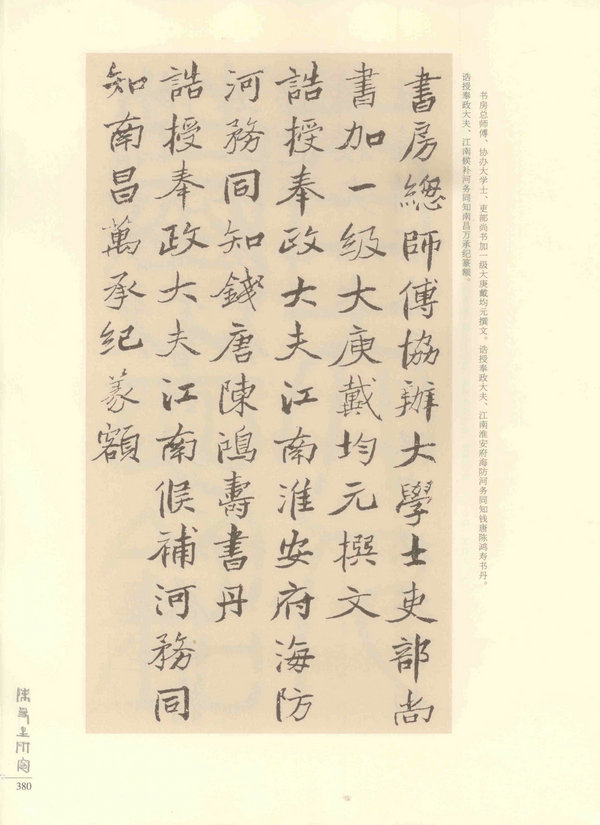 书房总师傅、协办大学士、吏部尚书加一级大庚戴均元撰文。诰授奉政大夫、江南淮安府海防河务同知钱唐陈鸿寿书丹。
诰授奉政大夫、江南候补河务同知南昌万承纪篆额。
書房總師傅協辦大學士吏部尚
書加一級大庚戴均元撰文
誥授奉政大夫江南淮安府海防
河務同知錢唐陳鴻壽書丹
誥授奉政大夫江南候補河務同
知南昌萬承紀篆額
380